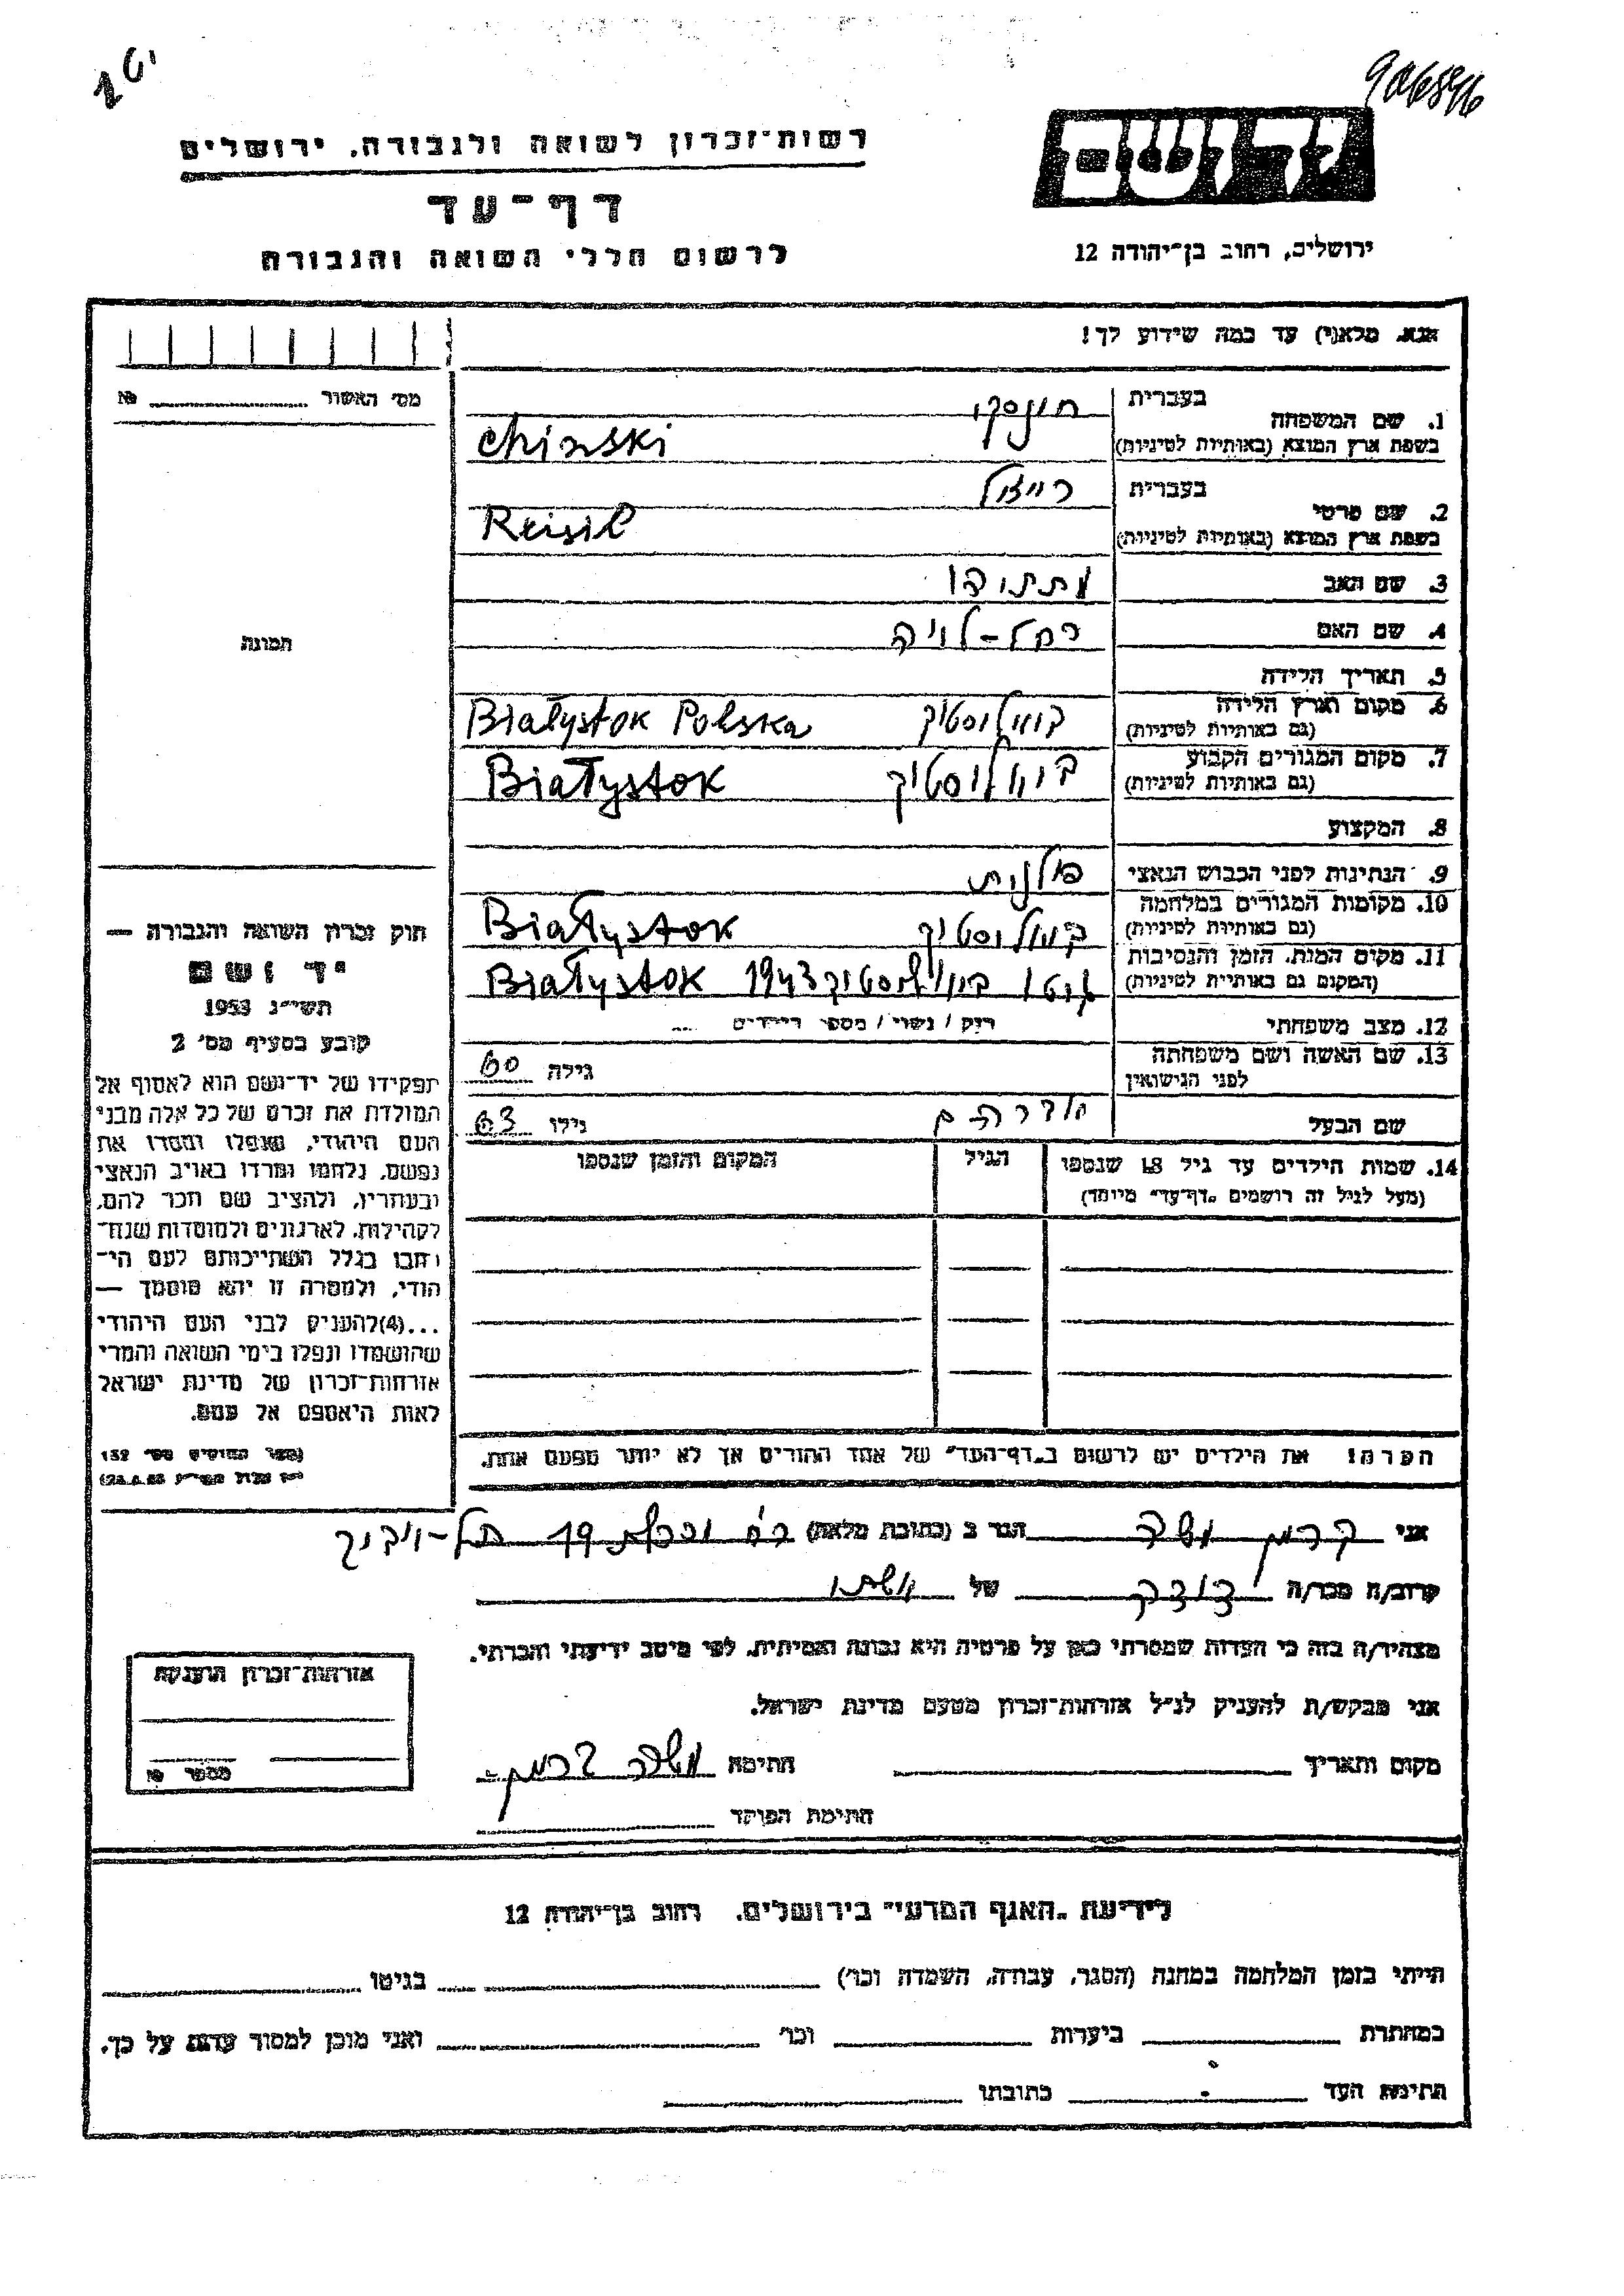 רשות־זכרון לשואה ולגבורה, ירושלים
דף־עד
לרשום חללי השואה והגבורה
יד ושם
ירושלים, רחוב בן־יהודה 12
אנא, מלא(י) עד כמה שידוע לך!
מס׳ האשור № 
1. שם המשפחה בעברית
בשפת ארץ המוצא (באותיות לטיניות) Chinski
2. שם פרטי בעברית רייזל
בשפת ארץ המוצא (באותיות לטיניות) Reisil
3. שם האב מתתיהו
4. שם האם רחל-לויה
5. תאריך הלידה
6. מקום וארץ הלידה ביאליסטוק Białystok Polska
(גם באותיות לטיניות)
7. מקום המגורים הקבוע ביאליסטוק Białystok
(גם באותיות לטיניות)
8. המקצוע
9. הנתינות לפני הכבוש הנאצי פולנית
10. מקומות המגורים במלחמה ביאליסטוק Białystok
(גם באותיות לטיניות)
11. מקום המות, הזמן והנסיבות גטו ביאליסטוק 1943 Białystok
(המקום גם באותיות לטיניות)
12. מצב משפחתי רווק / נשוי / מספר הילדים
13. שם האשה ושם משפחתה גילה 60
לפני הנישואין
שם הבעל אברהם גילו 63
14. שמות הילדים עד גיל 18 שנספו הגיל המקום והזמן שנספו
(מעל לגיל זה רושמים „דף־עד” מיוחד)
הערה! את הילדים יש לרשום ב„דף־העד” של אחד ההורים אך לא יותר מפעם אחת.
תמונה
חוק זכרון השואה והגבורה —
יד ושם
תשי״ג 1953
קובע בסעיף מס׳ 2
תפקידו של יד־ושם הוא לאסוף אל
המולדת את זכרם של כל אלה מבני
העם היהודי, שנפלו ומסרו את
נפשם, נלחמו ומרדו באויב הנאצי
ובעוזריו, ולהציב שם וזכר להם,
לקהילות, לארגונים ולמוסדות שנח־
רבו בגלל השתייכותם לעם הי־
הודי, ולמטרה זו יהא מוסמך —
...(4)להעניק לבני העם היהודי
שהושמדו ונפלו בימי השואה והמרי
אזרחות־זכרון של מדינת ישראל
לאות היאספם אל עמם.
אני משה הגר ב (כתובת מלאה) 19 תל-אביב
קרוב/ה מכר/ה של אשתו
מצהיר/ה בזה כי העדות שמסרתי כאן על פרטיה היא נכונה ואמיתית, לפי מיטב ידיעתי והכרתי.
אני מבקש/ת להעניק לנ״ל אזרחות־זכרון מטעם מדינת ישראל.
מקום ותאריך חתימה משה
חתימת הפוקד
אזרחות־זכרון הוענקה
מספר №
לידיעת „האגף המדעי” בירושלים, רחוב בן־יהודה 12
הייתי בזמן המלחמה במחנה (הסגר, עבודה, השמדה וכו׳) בגיטו
במחתרת ביערות וכו׳ ואני מוכן למסור עדות על כך.
חתימת העד כתובתו